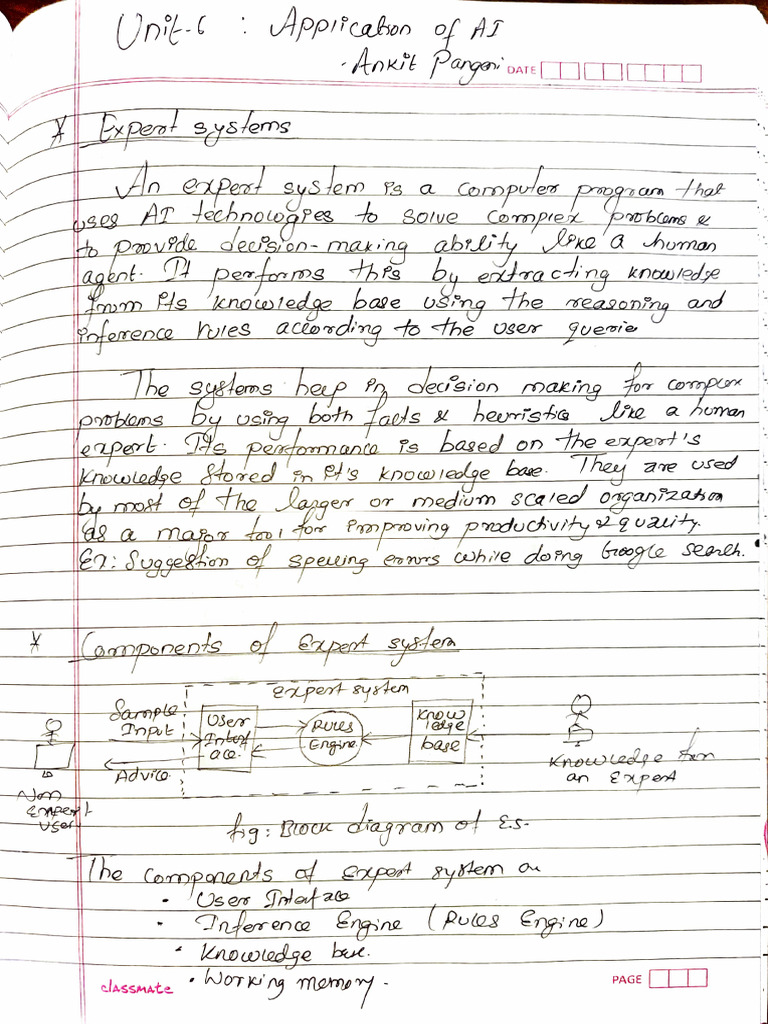 Unit-6 : Application of AI
- Ankit Pangeni
DATE
* Expert systems
An expert system is a computer program that
uses AI technologies to solve complex problems &
to provide decision-making ability like a human
agent. It performs this by extracting knowledge
from its knowledge base using the reasoning and
inference rules according to the user querie
The systems help in decision making for complex
problems by using both facts & heuristics like a human
expert. Its performance is based on the expert's
knowledge stored in it's knowledge base. They are used
by most of the larger or medium scaled organization
as a major tool for improving productivity & quality.
Ex: Suggestion of spelling errors while doing Google search.
* Components of Expert system
expert system
Sample
Input
Advice
User
Interf
ace.
Rules
Engine
Know
ledge
base
Non
Expert
User
Knowledge from
an Expert
fig: Block diagram of E.S.
The components of expert system are
• User Interface
• Inference Engine (Rules Engine)
• Knowledge base.
• Working memory.
classmate
PAGE